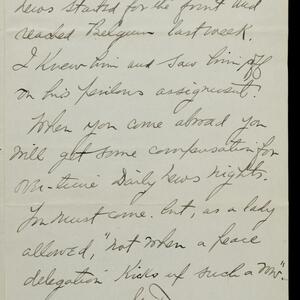 news started for the front and
reached Belgium last week.
I knew him and saw him off
on his perilous assignment.
When you come abroad you
will get some compensation for
one-time Daily News nights.
You must come. But, as a lady
allowed, "not when a peace
delegation kicks up such a row".